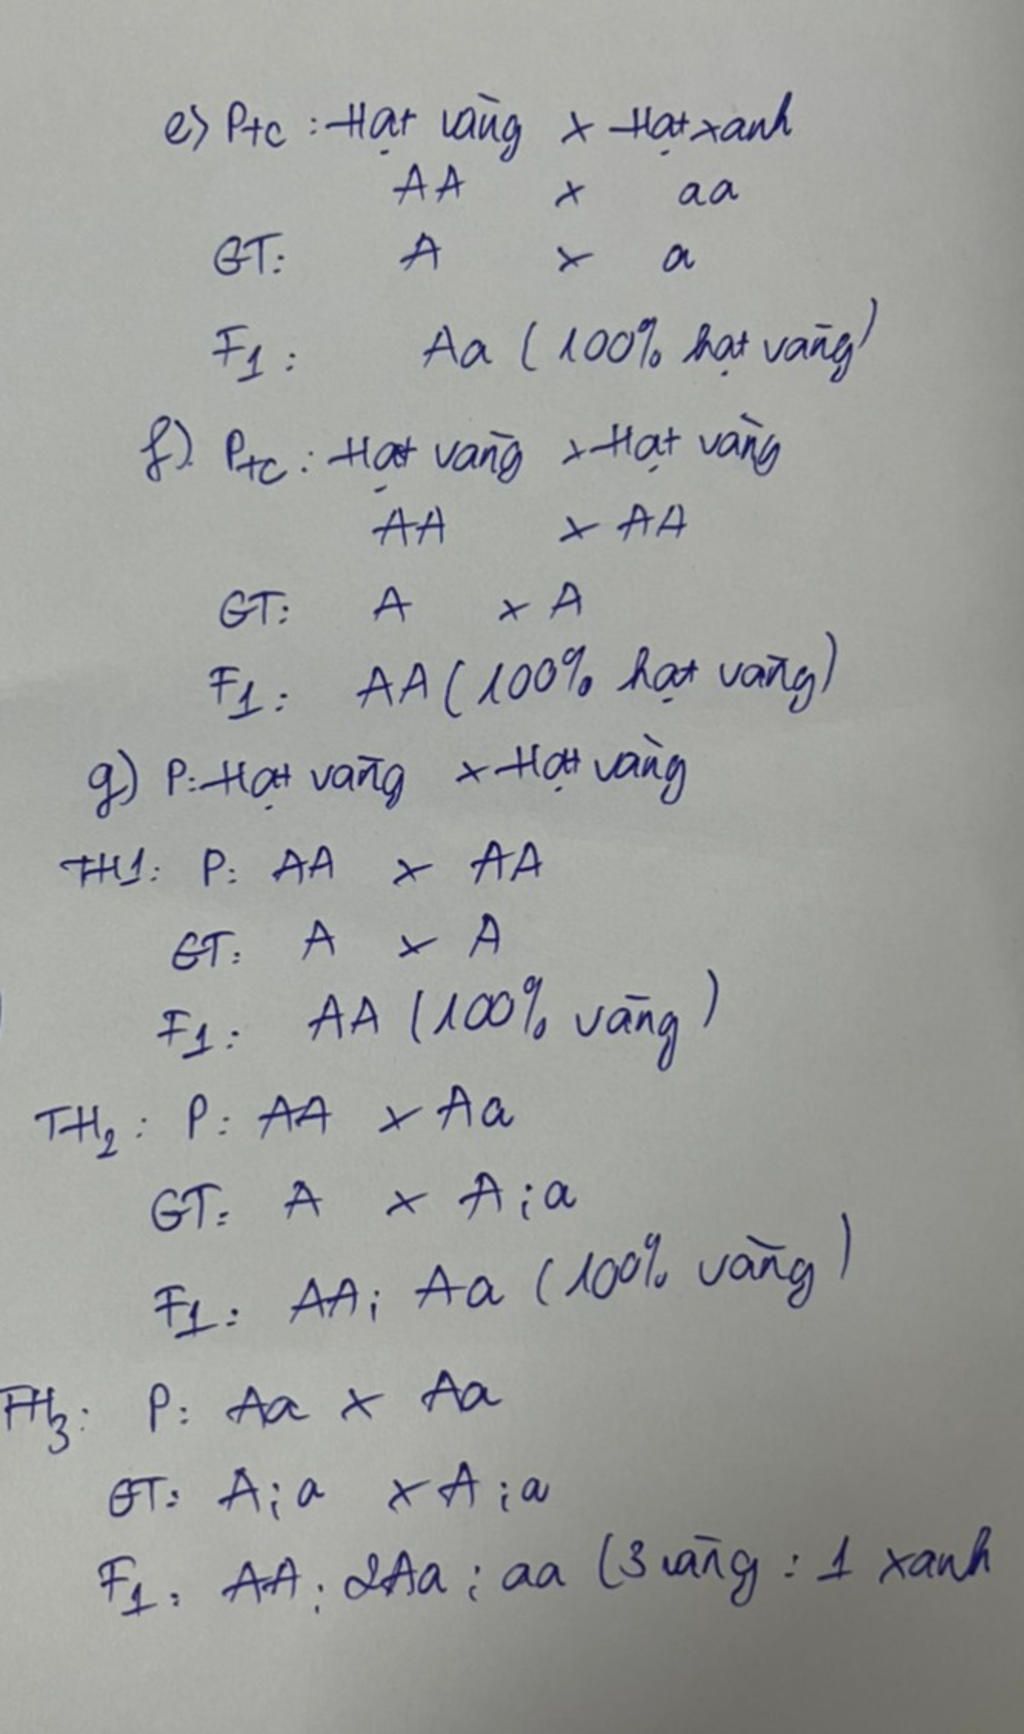 e) Ptc: Hạt vàng x Hạt xanh
AA x aa
GT: A x a
F1: Aa (100% hạt vàng)
f) Ptc: Hạt vàng x Hạt vàng
AA x AA
GT: A x A
F1: AA (100% hạt vàng)
g) P: Hạt vàng x Hạt vàng
TH1: P: AA x AA
GT: A x A
F1: AA (100% vàng)
TH2: P: AA x Aa
GT: A x A; a
F1: AA; Aa (100% vàng)
TH3: P: Aa x Aa
GT: A; a x A; a
F1: AA: 2Aa: aa (3 vàng: 1 xanh